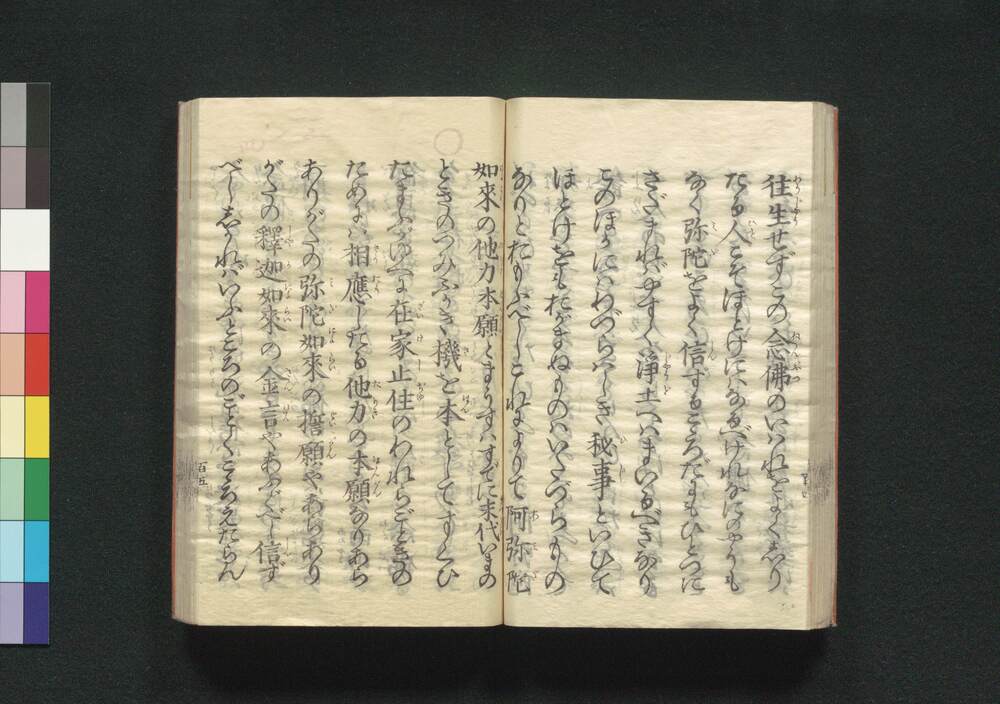 往生せずこの念佛のいはれをよくしり
たる人こそほとけにはなるべけれなにのやうも
なく弥陀をよく信ずるこゝろだにもひとつに
さだまればやすく浄土へはまいるべきなり
このほかにはわづらはしき秘事といひて
ほとけをもおがまぬものはいたづらものの
なりとおもふべしこれによりて阿弥陀
如来の他力本願とまうすはすでに末代いまの
ときのつみふかき機を本としてすくひ
たまふがゆへに在家止住のわれらごときの
ためには相應したる他力の本願なりあら
ありがたの弥陀如来の誓願やあらあり
がたの釋迦如来の金言やあふぐべし信ず
べししかればいふところのごとくこゝろえたらん
百五